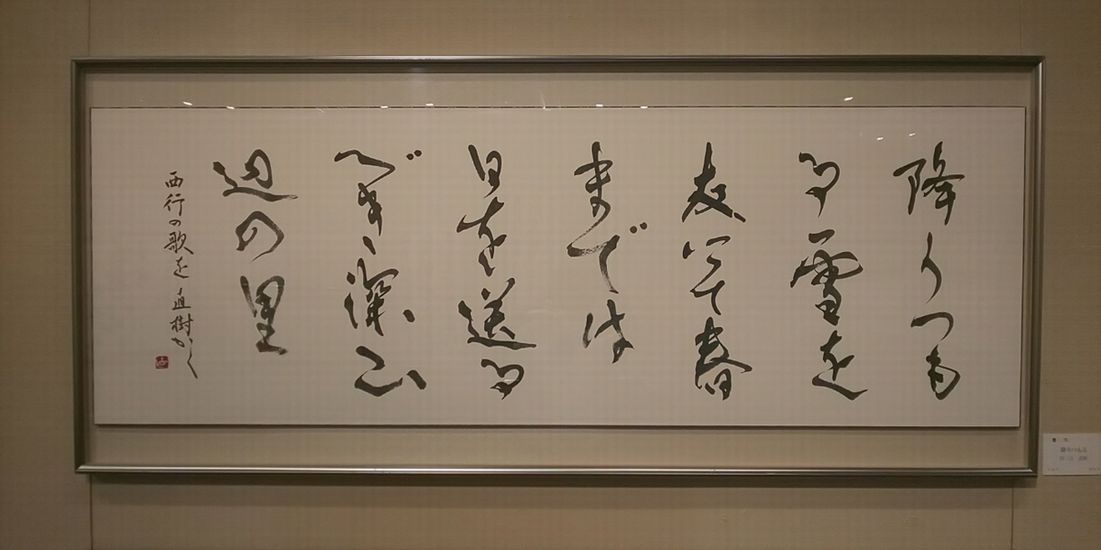 降りつも
る雪を
友にて春
までは
日を送る
べき深山
辺の里
西行の歌を 直樹かく